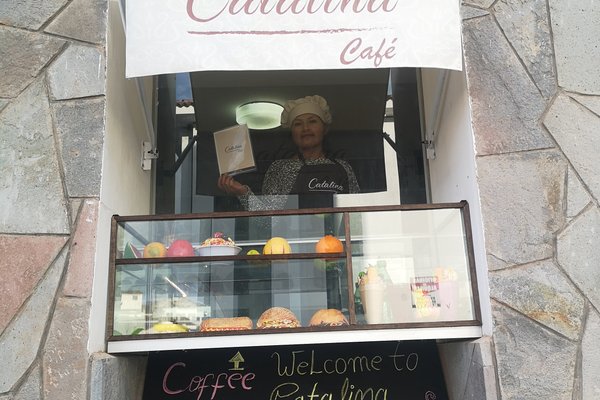 Catalina
Café
Catalina
Catalina
Coffee
Welcome to
Catalina